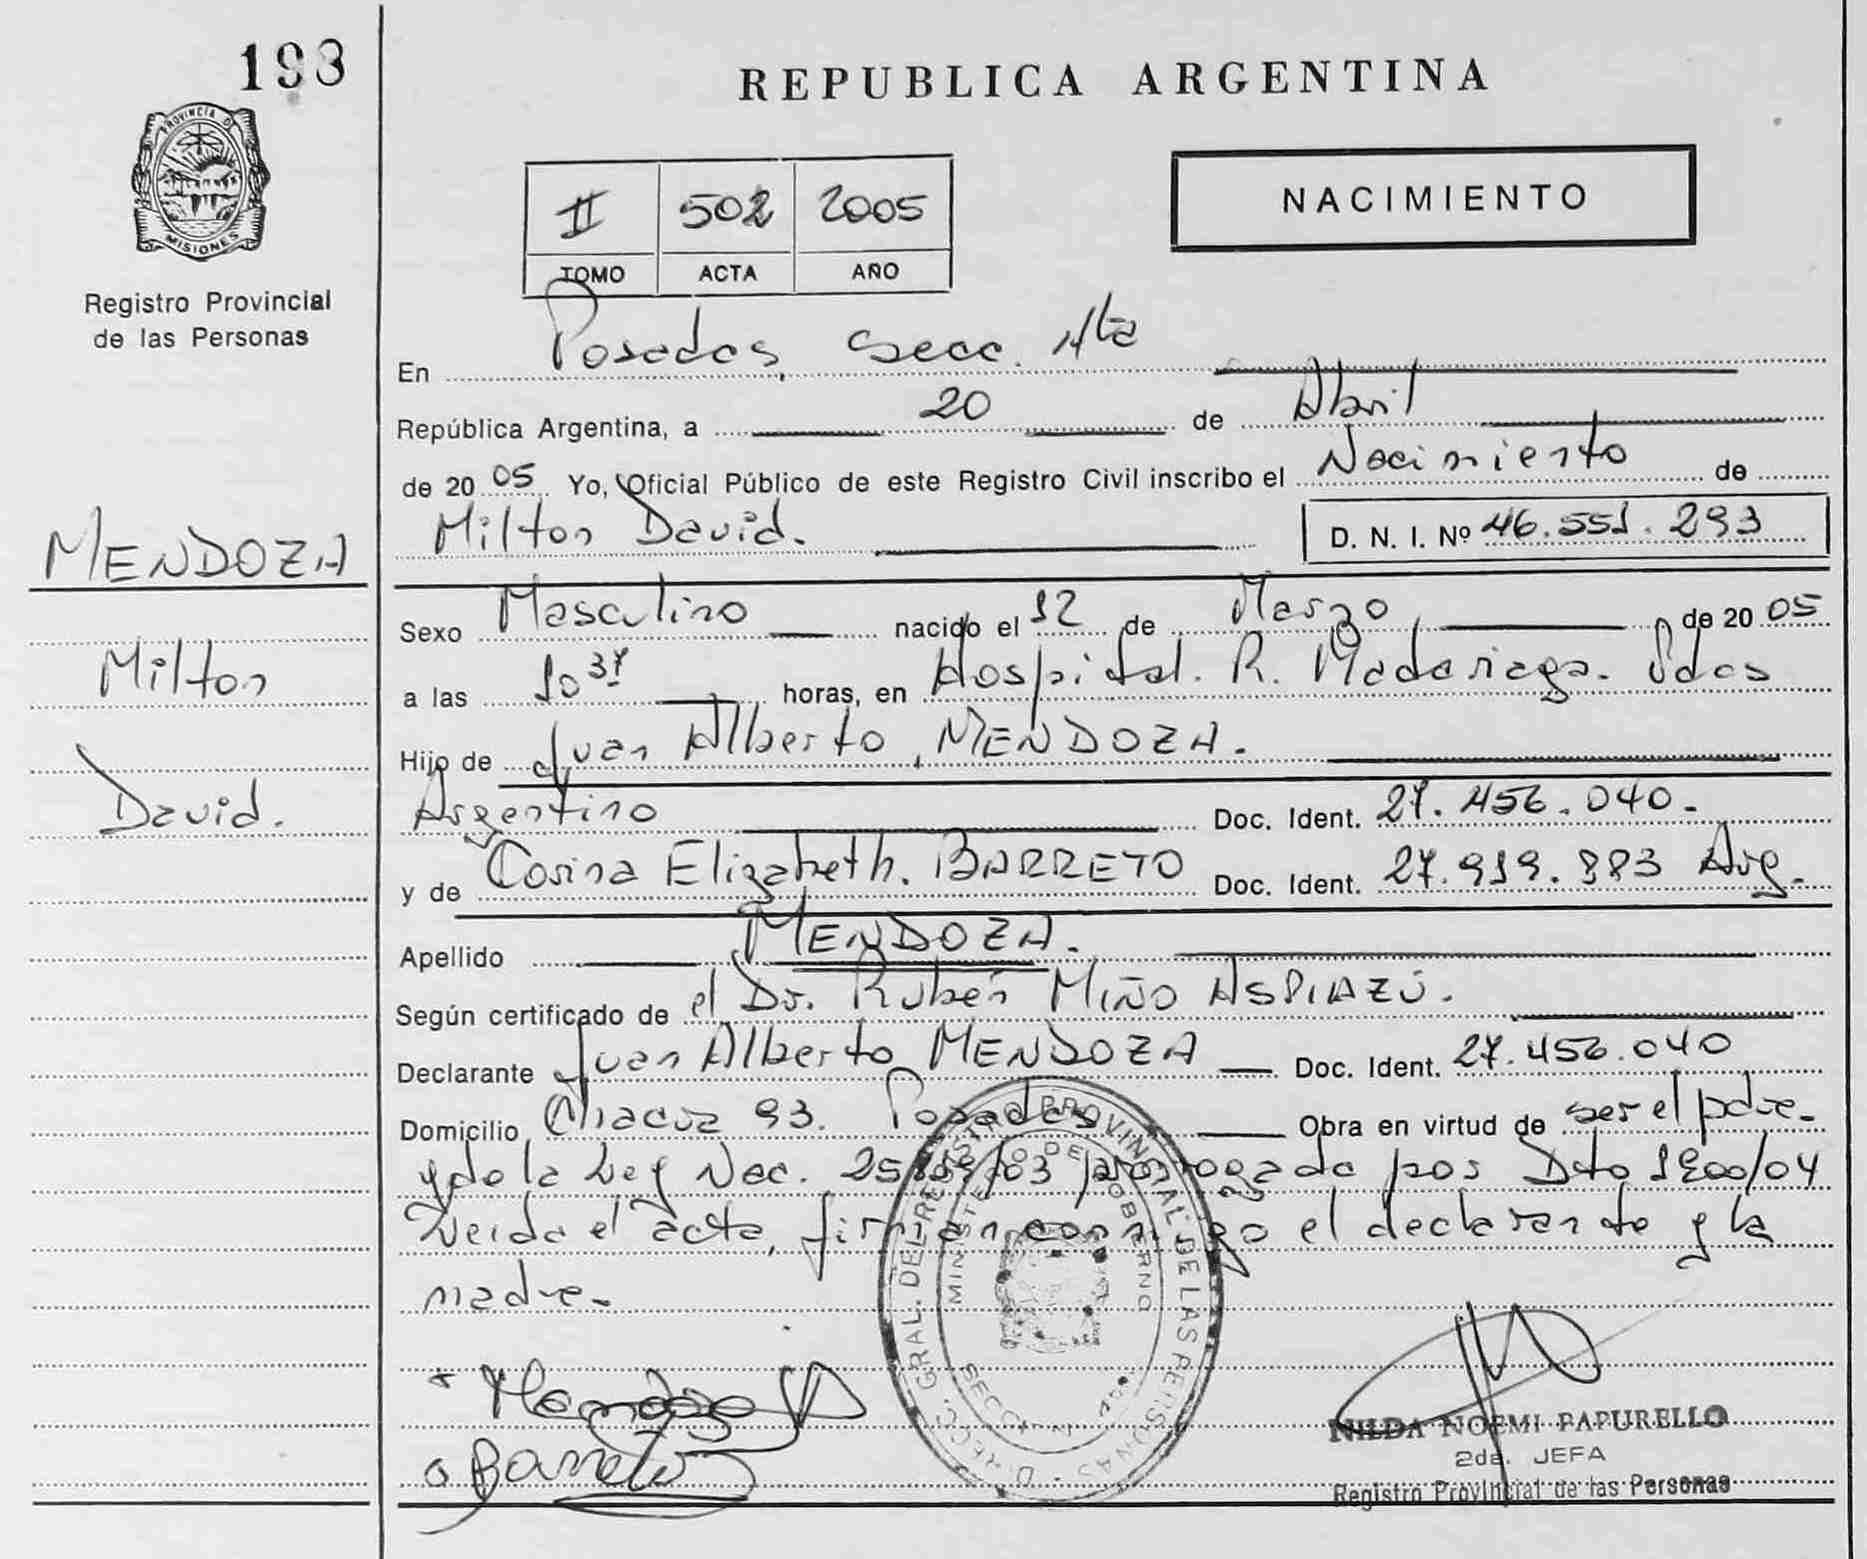 193
REPUBLICA ARGENTINA
PROVINCIA D
MISIONES
Registro Provincial
de las Personas
II 502 2005
TOMO ACTA AÑO
NACIMIENTO
En Posadas, Secc. 4ta
República Argentina, a 20 de Abril
de 2005 Yo, Oficial Público de este Registro Civil inscribo el Nacimiento de
Milton David.
D. N. I. Nº 46.551.293
MENDOZA
Milton
David.
Sexo Masculino nacido el 12 de Marzo de 2005
a las 10 37 horas, en Hospital. R. Madariaga. Pdas
Hijo de Juan Alberto, MENDOZA.
Argentino Doc. Ident. 27.456.040.-
y de Corina Elizabeth. BARRETO Doc. Ident. 27.919.883 Arg.
Apellido MENDOZA.
Según certificado de el Dr. Rubén MIÑO ASPIAZÚ.
Declarante Juan Alberto MENDOZA Doc. Ident. 27.456.040
Domicilio Chacra 93. Posadas Obra en virtud de ser el pdre-
y de la Ley Nac. prorogada por Dto 1200/04
Leida el acta, firman conmigo el declarante y la
madre.-
DIRECC. GRAL. DEL REGISTRO PROVINCIAL DE LAS PERSONAS
MINISTERIO DE GOBIERNO
Mendoza
Barreto
NILDA NOEMI PAPURELLO
2da. JEFA
Registro Provincial de las Personas